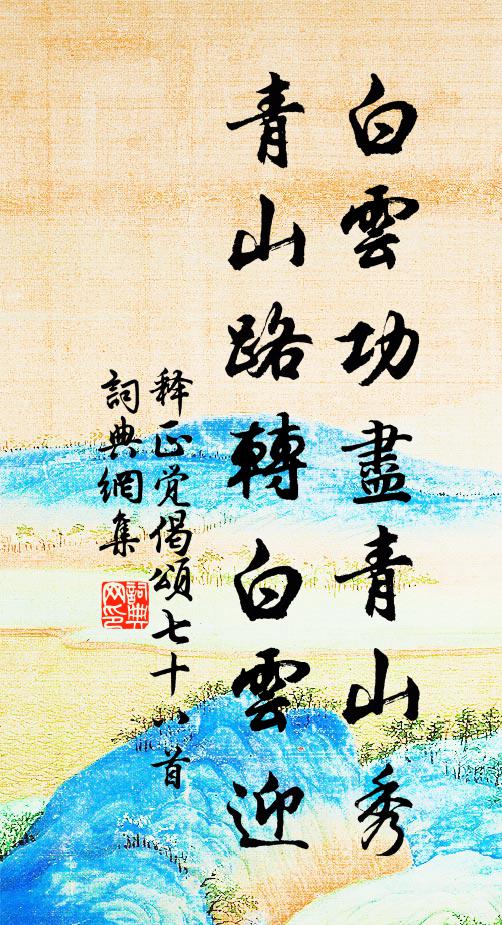 白雲功盡青山秀
青山路轉白雲迎
释正觉偈頌七十八首
詞典網集
詞典